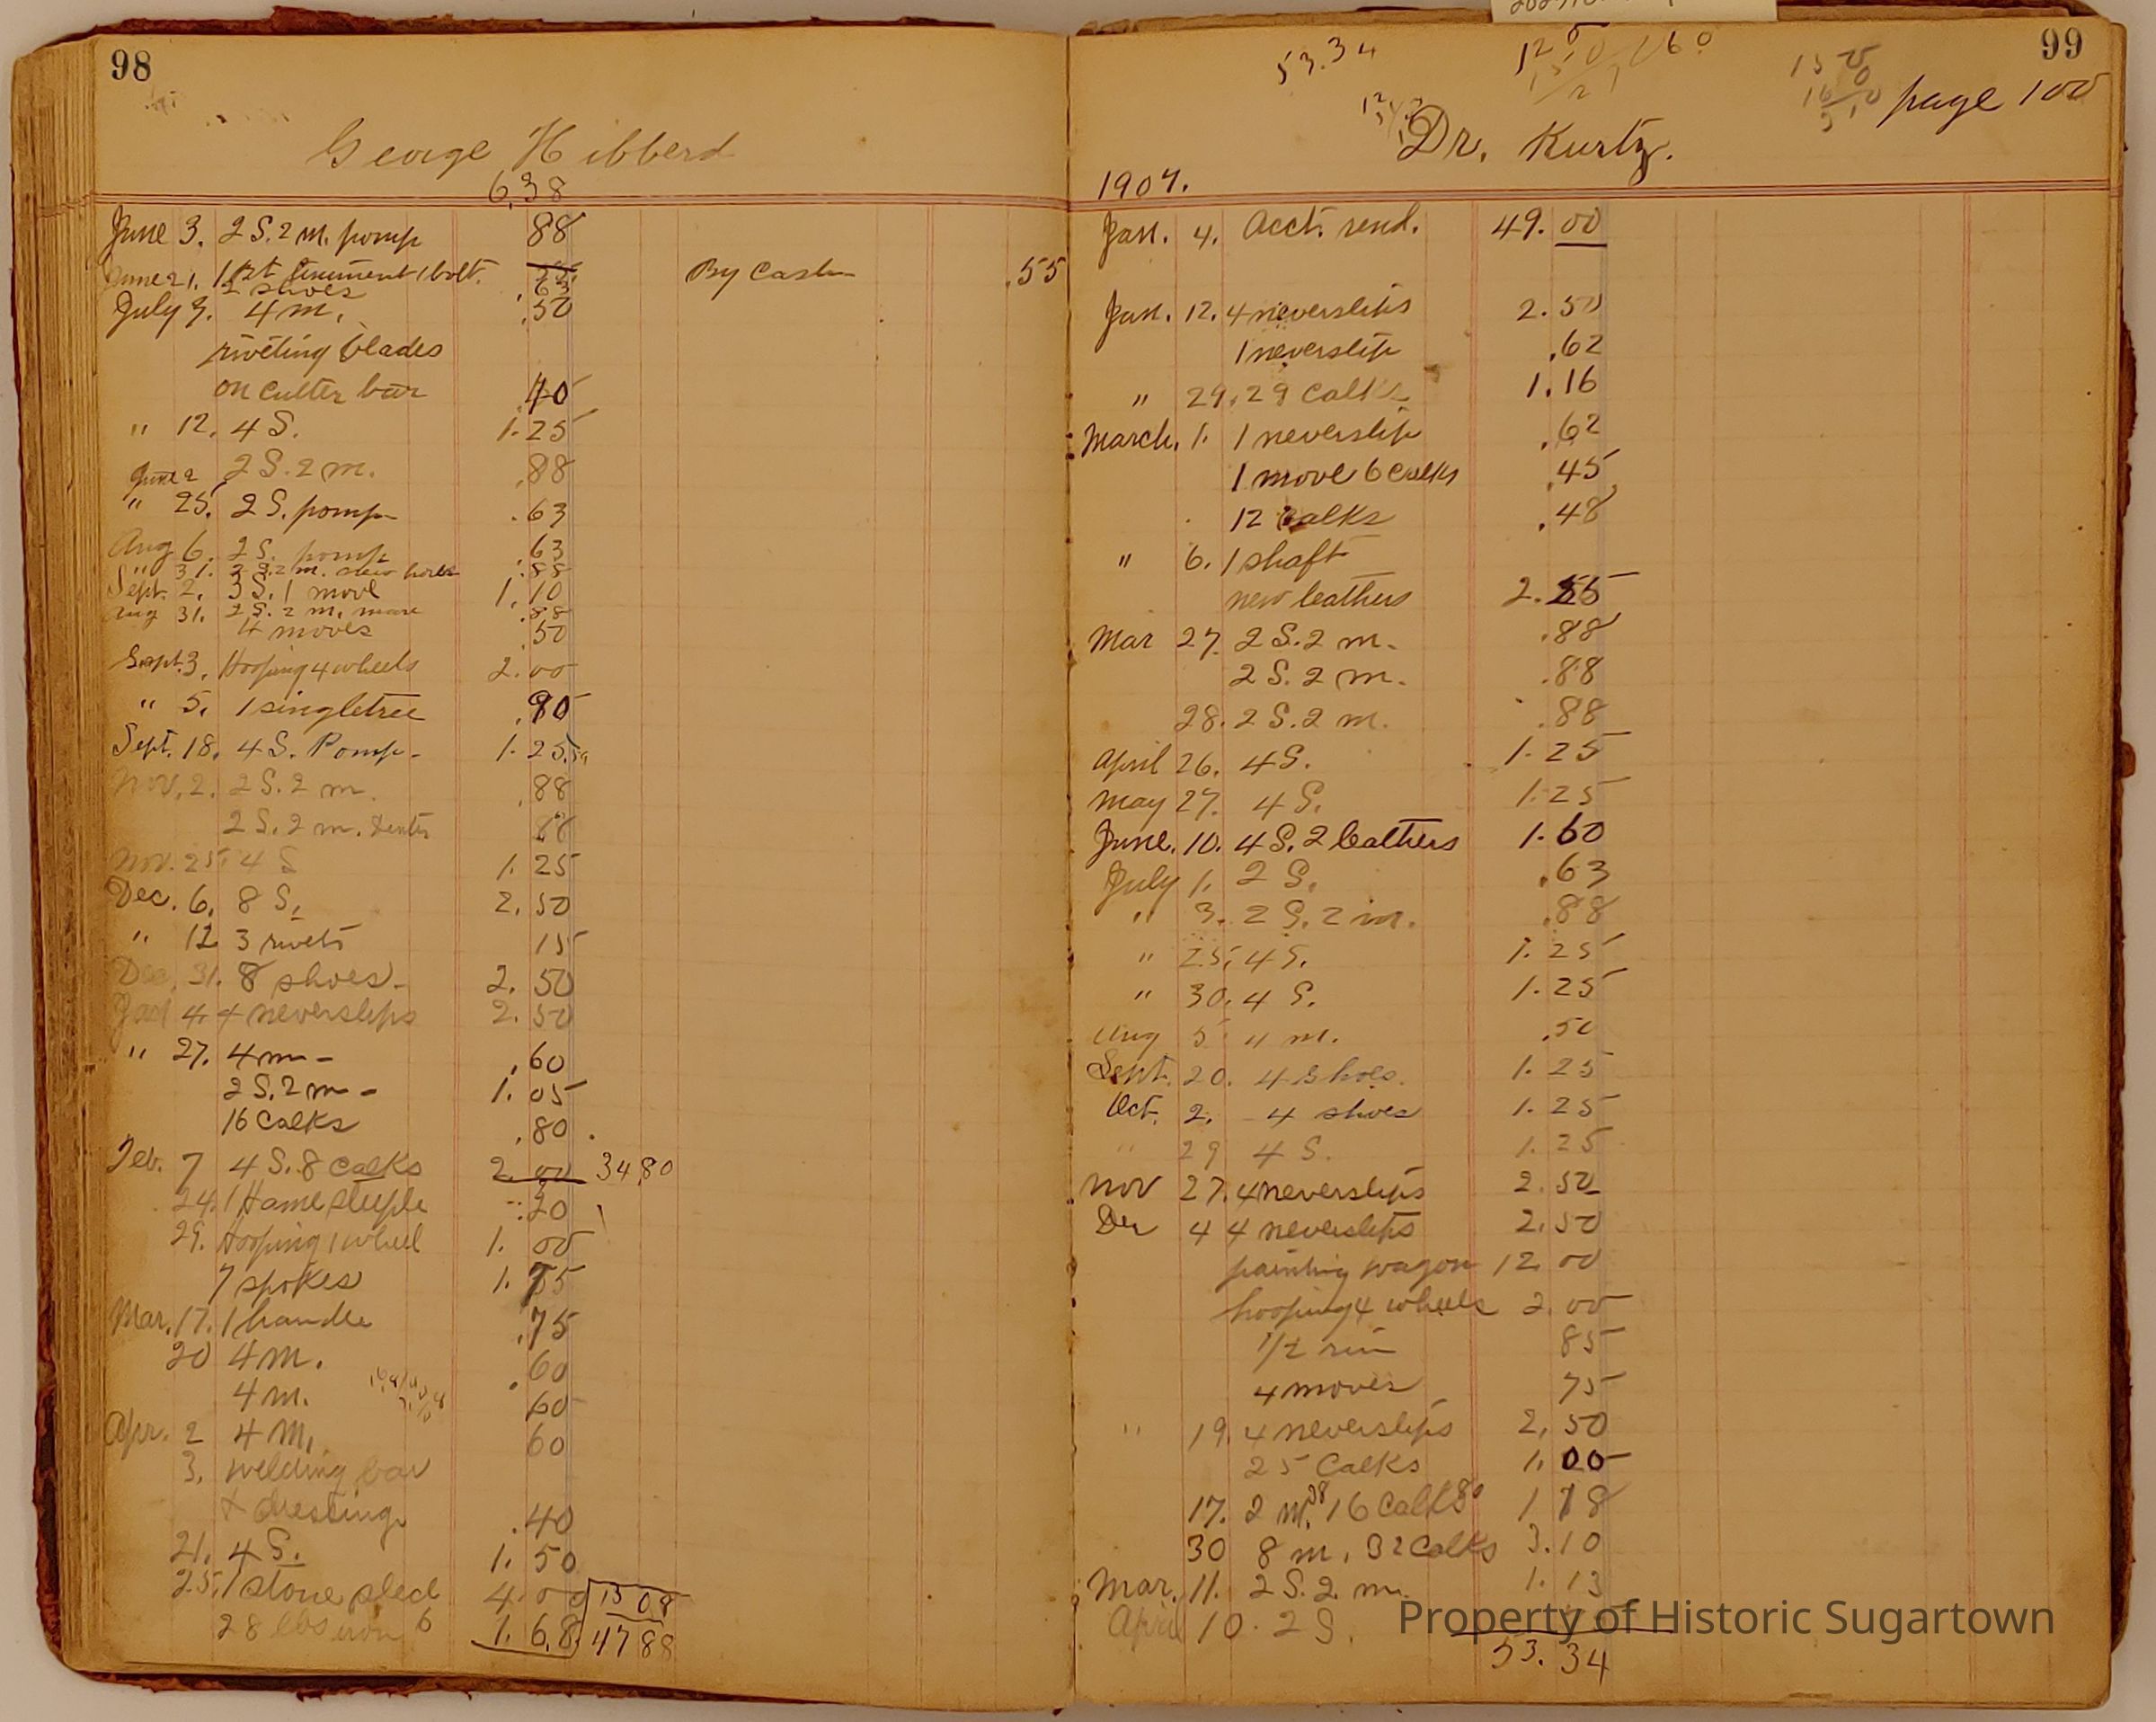 98
George Hibberd
6.38
June 3. 2 S. 2 m. pomp 88
June 21. 1 bolt.
2 shoes .63
By Cash .55
July 9. 4 m. .50
riveting blades
on cutter bar .40
" 12. 4 S. 1.25
June 2 2 S. 2 m. .88
" 25. 2 S. pomp .63
Aug 6. 2 S. pomp .63
" 31. 2 S. 2 m. .88
Sept. 2. 3 S. 1 move 1.10
Aug 31. 2 S. 2 m. mare .88
4 moves .50
Sept. 3. Hooping 4 wheels 2.00
" 5. 1 singletree .90
Sept. 18. 4 S. Pomp 1.25
Nov. 2. 2 S. 2 m. .88
2 S. 2 m. 88
Nov. 25. 4 S 1.25
Dec. 6. 8 S. 2.50
" 12 3 rivets 15
Dec. 31. 8 shoes 2.50
Jan 4. 4 neverslips 2.50
" 27. 4 m .60
2 S. 2 m 1.05
16 Calks .80
Feb. 7 4 S. 8 calks 2.00 34.80
24. 1 Hame steeple .20
29. Hooping 1 wheel 1.00
7 spokes 1.75
Mar. 17. 1 handle .75
20 4 m. .60
4 m. 60
Apr. 2 4 m. 60
3. welding bar
& dressing .40
21. 4 S. 1.50
25. 1 stone sled 4.00 13 08
28 lbs iron 6 1.68 47 88
99
53.34
page 100
Dr. Kurtz.
1907.
Jan. 4. Acct. rend. 49.00
Jan. 12. 4 neverslips 2.50
1 neverslip .62
" 29. 29 Calks 1.16
March. 1. 1 neverslip .62
1 move 6 calks .45
12 calks .48
" 6. 1 shaft
new leathers 2.
Mar 27. 2 S. 2 m. .88
2 S. 2 m. .88
28. 2 S. 2 m. .88
April 26. 4 S. 1.25
May 27. 4 S. 1.25
June. 10. 4 S. 2 leathers 1.60
July 1. 2 S. .63
" 3. 2 S. 2 m. .88
" 25. 4 S. 1.25
" 30. 4 S. 1.25
Aug 5 " m. .50
Sept. 20. 4 shoes. 1.25
Oct. 2. 4 shoes 1.25
" 29 4 S. 1.25
Nov 27. 4 neverslips 2.50
Dec 4 4 neverslips 2.50
painting wagon 12 00
hooping 4 wheels 2.00
1/2 rim 85
4 moves 75
" 19. 4 neverslips 2.50
25 Calks 1.00
17. 2 m. 38 16 Calks 80 1 18
30 8 m. 32 Calks 3.10
Mar. 11. 2 S. 2 m. 1.13
April 10. 2 S.
53.34
Property of Historic Sugartown